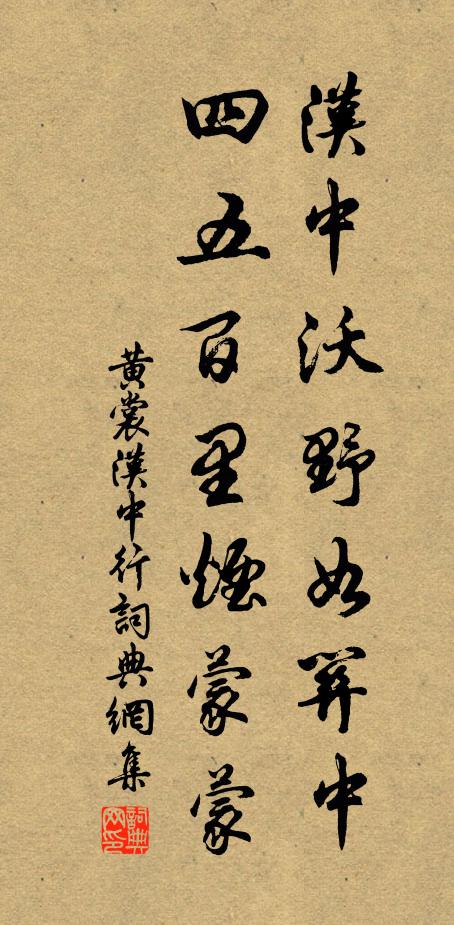 漢中沃野如關中
四五百里煙蒙蒙
黃裳漢中行詞典網集
詞典
网印